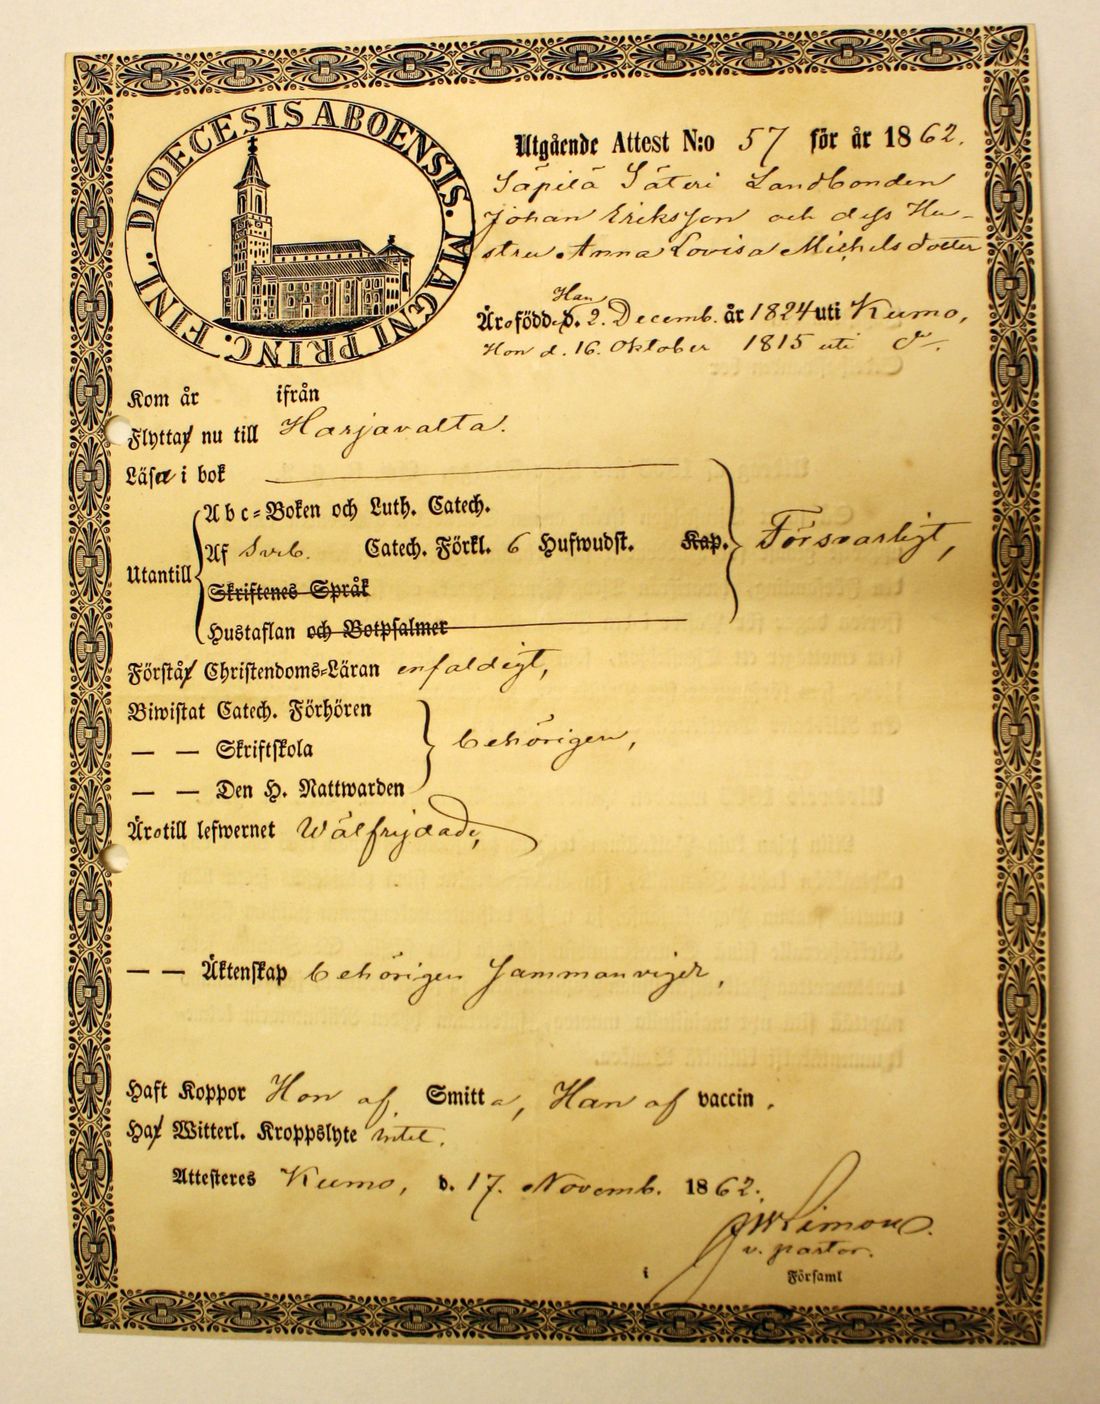 DIOECESIS ABOENSIS. MAGNI PRINC. FINL.
Utgående Attest N:o 57 för år 1862.
Säpilä Säteri Landbonden
Johan Eriksson och dess Hu-
stru Anna Lovisa Michelsdotter
Han
Äro födde d. 2. Decemb. år 1824 uti Kumo,
Hon d. 16. Oktober 1815 uti d:o.
Kom år ifrån
Flytta nu till Harjavalta.
Läsa i bok
Abc=Boken och Luth. Catech.
Af Sveb. Catech. Förkl. 6 Hufwudst. Kap. Försvarligt,
Utantill
Skriftenes Språk
Hustaflan och Botpsalmer
Förstå Christendoms=Läran enfaldigt,
Biwistat Catech. Förhören
— — Skriftskola behörigen,
— — Den H. Nattwarden
Äro till lefwernet Wälfrejdade,
— — Äktenskap behörigen sammanvigde,
Haft Koppor Hon af Smitta, Han af vaccin.
Ha Witterl. Kroppslyte intet.
Attesteres Kumo, d. 17. Novemb. 1862.
v. pastor.
i Församl